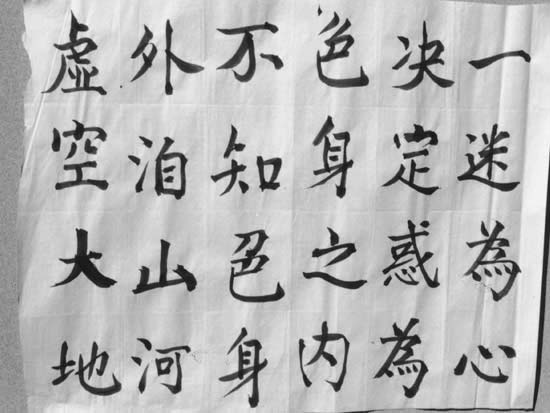 一迷為心
决定惑為
色身之内
不知色身
外洎山河
虚空大地